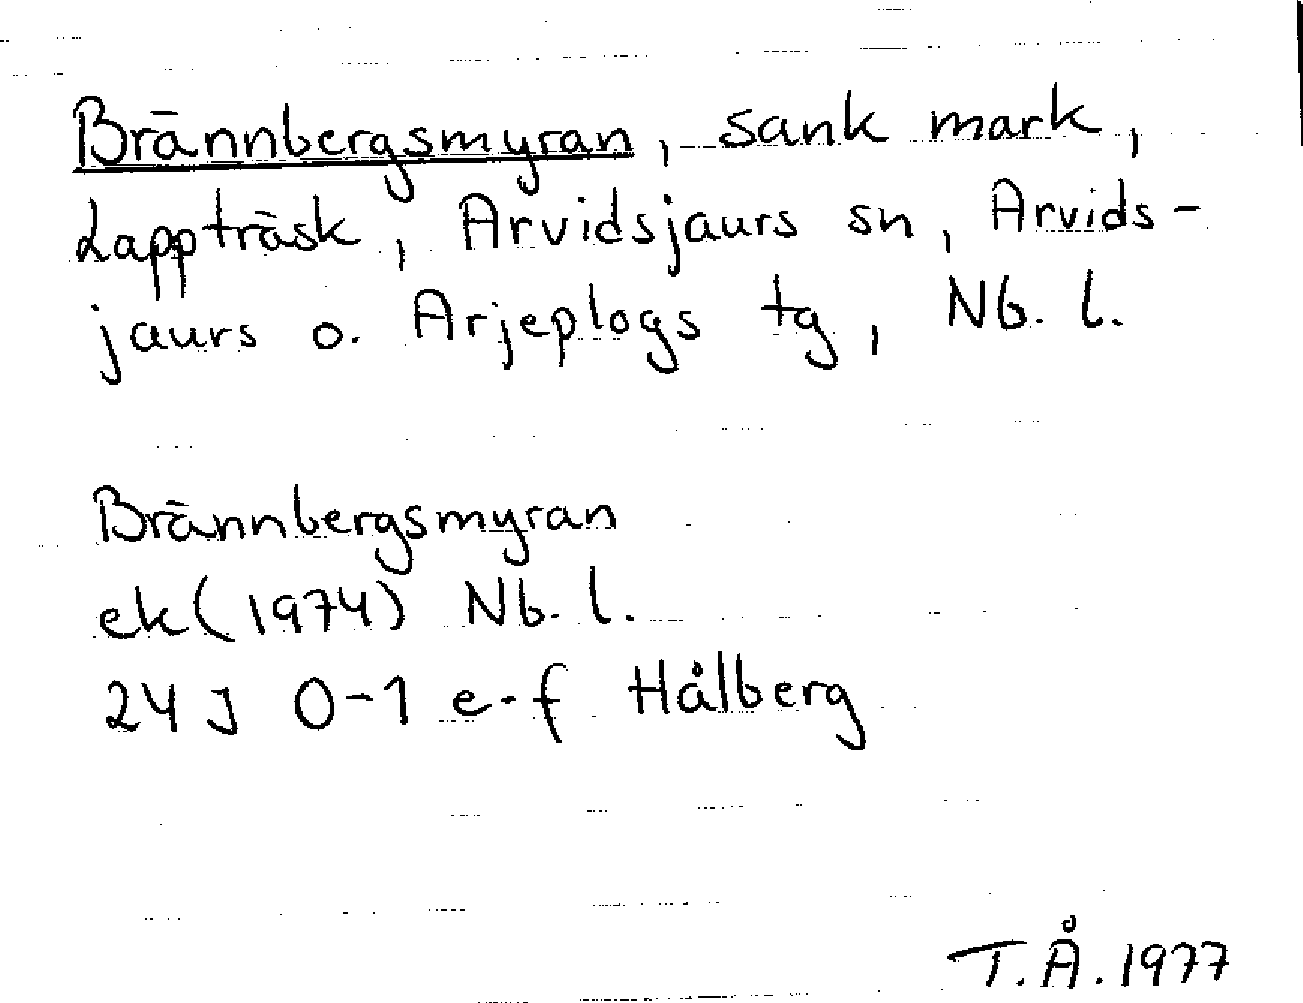 Brännbergsmyran, sank mark,
Lappträsk, Arvidsjaurs sn, Arvids-
jaurs o. Arjeplogs tg, Nb. l.
Brännbergsmyran
ek (1974) Nb. l.
24 J 0-1 e-f Hålberg
T.Å. 1977